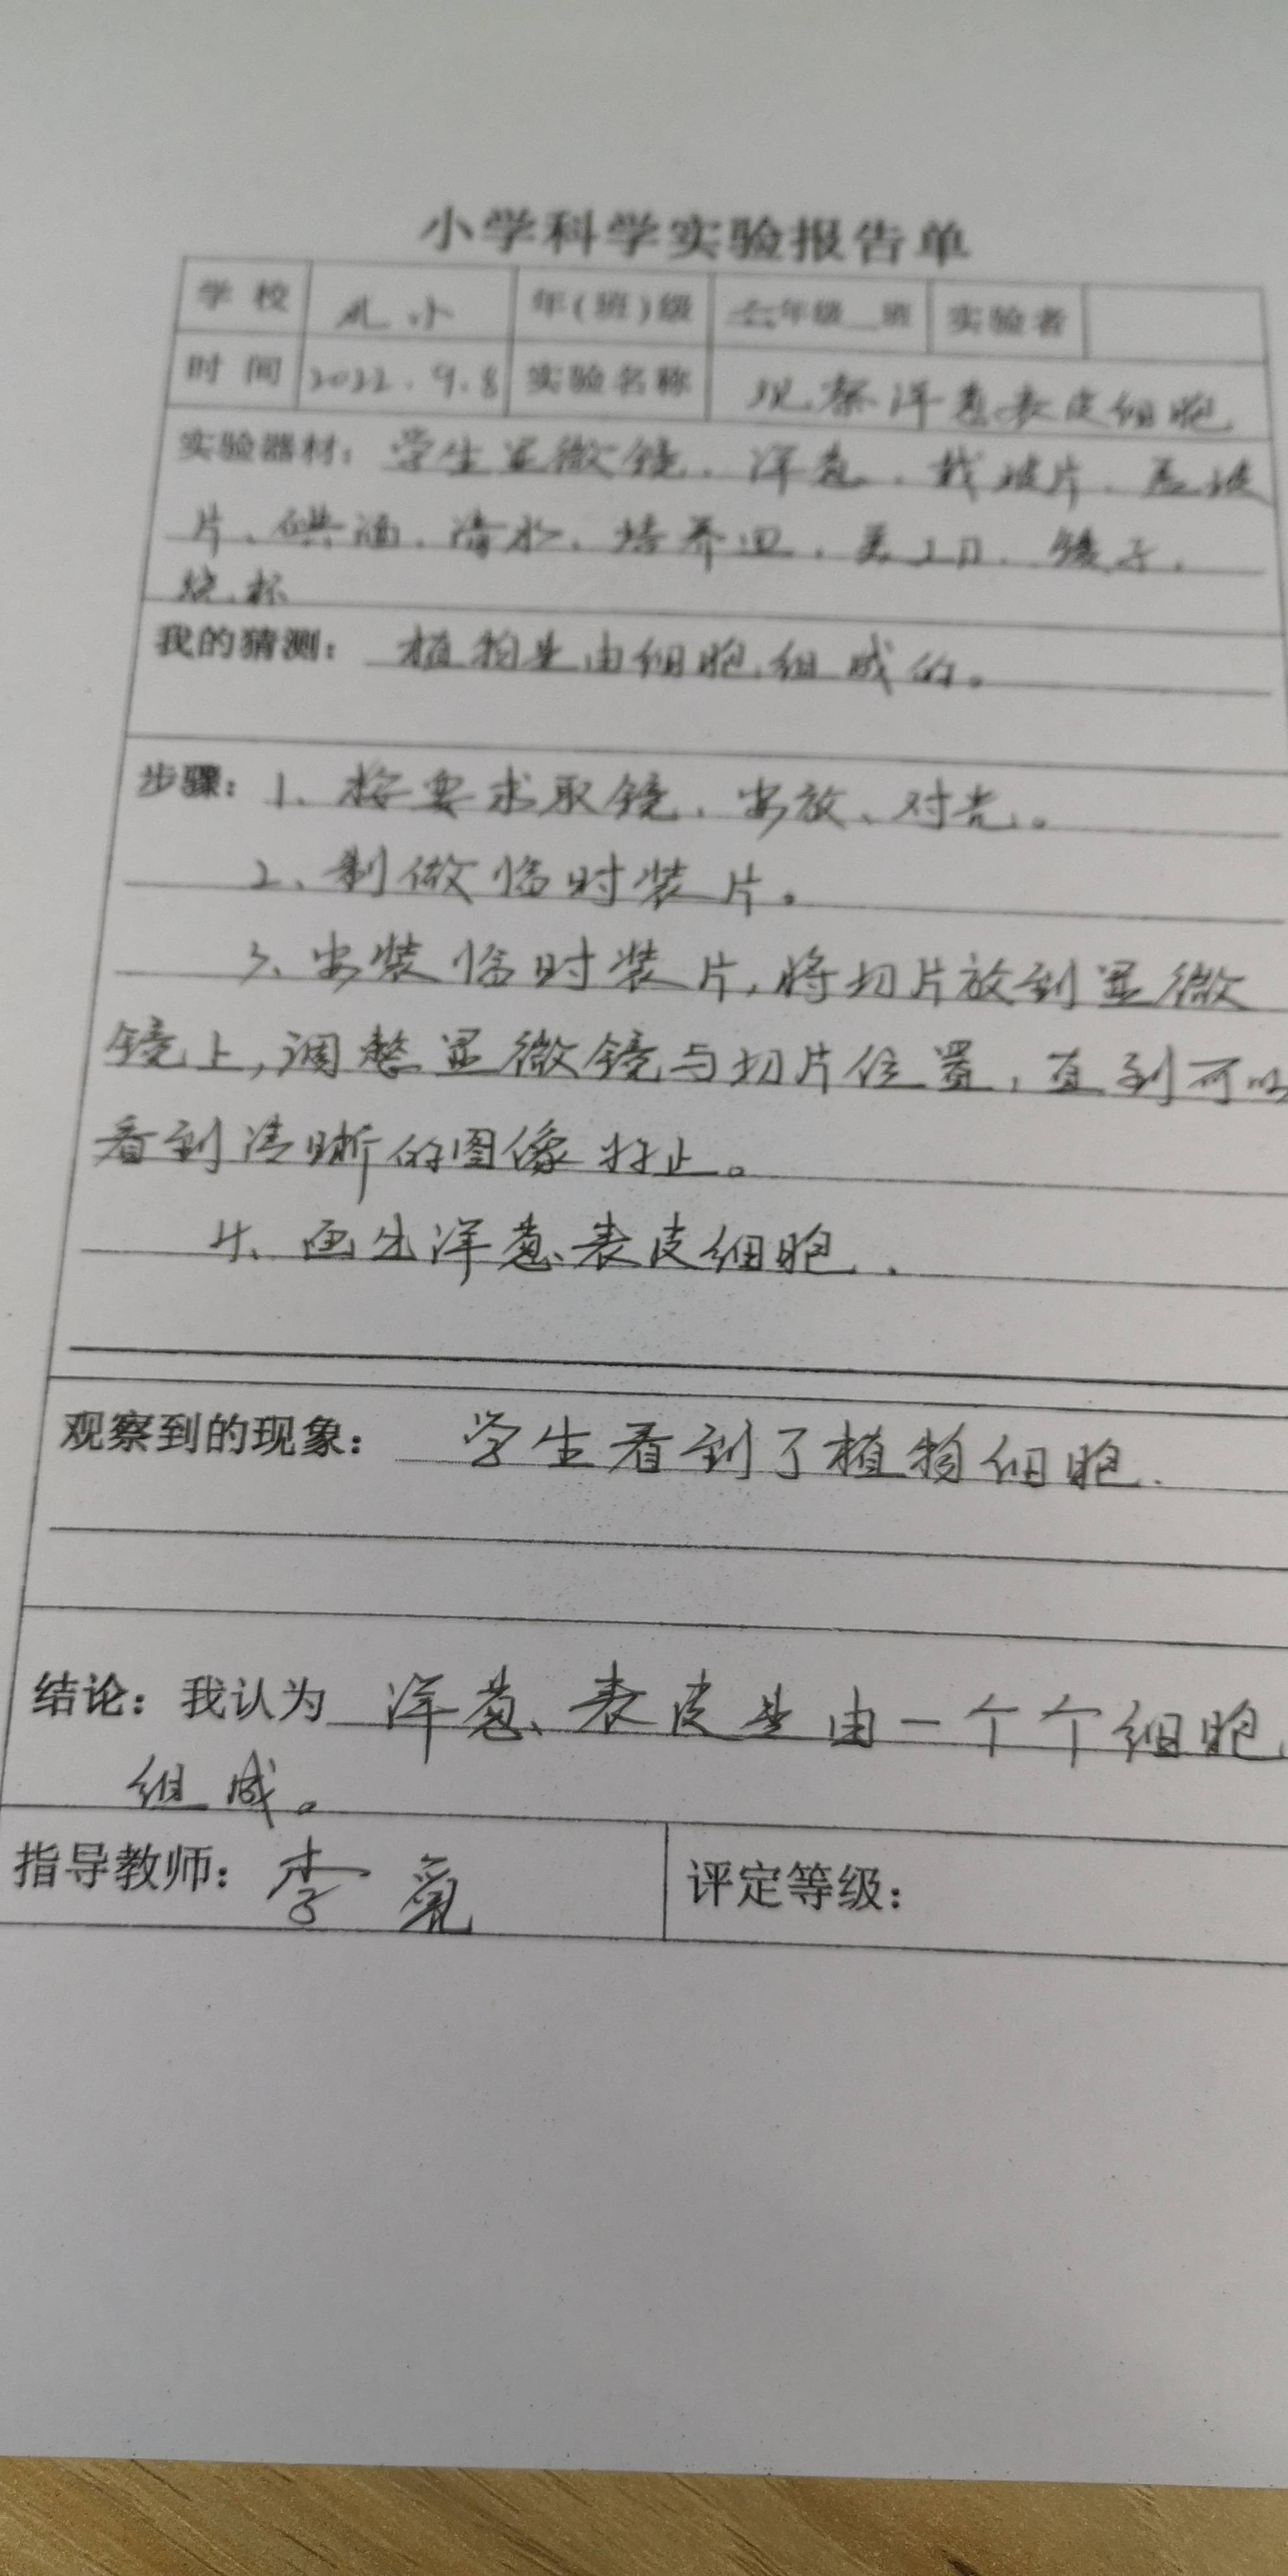 小学科学实验报告单
学校 九小 年(班)级 六年级__班 实验者
时间 2022.9.8 实验名称 观察洋葱表皮细胞
实验器材：学生显微镜、洋葱、载玻片、盖玻
片、碘酒、清水、培养皿、美工刀、镊子、
烧杯
我的猜测：植物是由细胞组成的。
步骤：1、按要求取镜、安放、对光。
2、制做临时装片。
3、安装临时装片,将切片放到显微
镜上,调整显微镜与切片位置,直到可以
看到清晰的图像为止。
4、画出洋葱表皮细胞.
观察到的现象：学生看到了植物细胞.
结论：我认为 洋葱表皮是由一个个细胞
组成。
指导教师：李 评定等级：